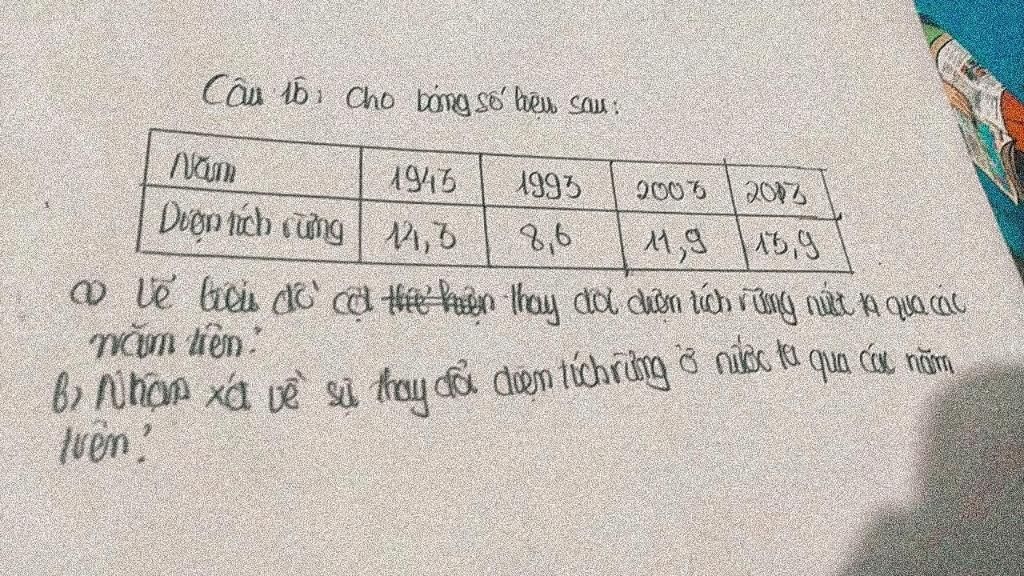 Câu 15: Cho bảng số liệu sau:
Năm 1943 1993 2003 2013
Diện tích rừng 14,3 8,6 11,9 13,9
a) Vẽ biểu đồ cột thay đổi diện tích rừng nước ta qua các
năm trên?
b, Nhận xét về sự thay đổi diện tích rừng ở nước ta qua các năm
trên?